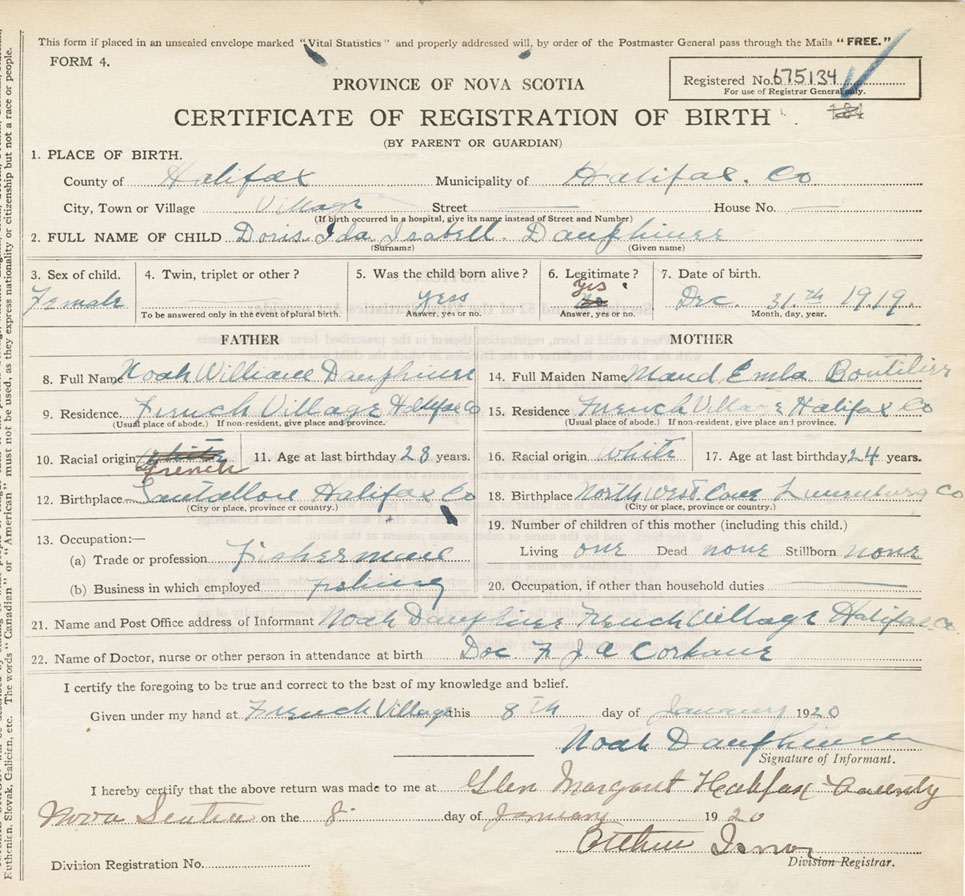 This form if placed in an unsealed envelope marked "Vital Statistics" and properly addressed will, by order of the Postmaster General pass through the Mails "FREE."
FORM 4.
PROVINCE OF NOVA SCOTIA
Registered No. 675134
For use of Registrar General only.
CERTIFICATE OF REGISTRATION OF BIRTH
(BY PARENT OR GUARDIAN)
1. PLACE OF BIRTH.
County of Halifax Municipality of Halifax. Co
City, Town or Village Village Street House No.
(If birth occurred in a hospital, give its name instead of Street and Number)
2. FULL NAME OF CHILD Doris Ida Isabell. Dauphiner
(Surname) (Given name)
3. Sex of child. 4. Twin, triplet or other ? 5. Was the child born alive ? 6. Legitimate ? 7. Date of birth.
Female yess Yes Dec. 31th 1919.
To be answered only in the event of plural birth. Answer, yes or no. Answer, yes or no. Month, day, year.
FATHER MOTHER
8. Full Name Noah William Dauphiner 14. Full Maiden Name Maud Emla Boutilier
9. Residence. French Village Halifax Co 15. Residence French Village Halifax Co
(Usual place of abode.) If non-resident, give place and province. (Usual place of abode.) If non-resident, give place and province.
10. Racial origin white French 11. Age at last birthday 28 years. 16. Racial origin white 17. Age at last birthday 24 years.
12. Birthplace Halifax Co 18. Birthplace North West Cove Lunenburg Co
(City or place, province or country.) (City or place, province or country.)
13. Occupation:— 19. Number of children of this mother (including this child.)
(a) Trade or profession Fisherman Living one Dead none Stillborn none
(b) Business in which employed fishing 20. Occupation, if other than household duties
21. Name and Post Office address of Informant Noah Dauphiner French Village Halifax Co
22. Name of Doctor, nurse or other person in attendance at birth Doc F J A
I certify the foregoing to be true and correct to the best of my knowledge and belief.
Given under my hand at French Village this 8th day of January 1920
Noah Dauphiner
Signature of Informant.
I hereby certify that the above return was made to me at Glen Margaret Halifax County
Nova Scotia on the 8 day of January 1920
Division Registrar.
Division Registration No.
Ruthenian, Slovak, Galicien, etc. The words "Canadian" or "American" must not be used, as they express nationality or citizenship but not a race or people.